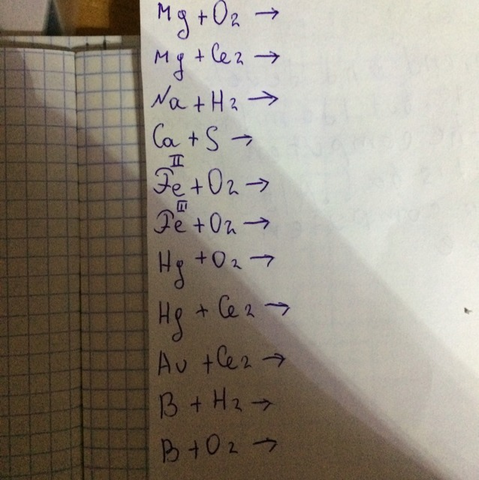 Mg + O2 →
Mg + Cl2 →
Na + H2 →
Ca + S →
II
Fe + O2 →
III
Fe + O2 →
Hg + O2 →
Hg + Cl2 →
Au + Cl2 →
B + H2 →
B + O2 →